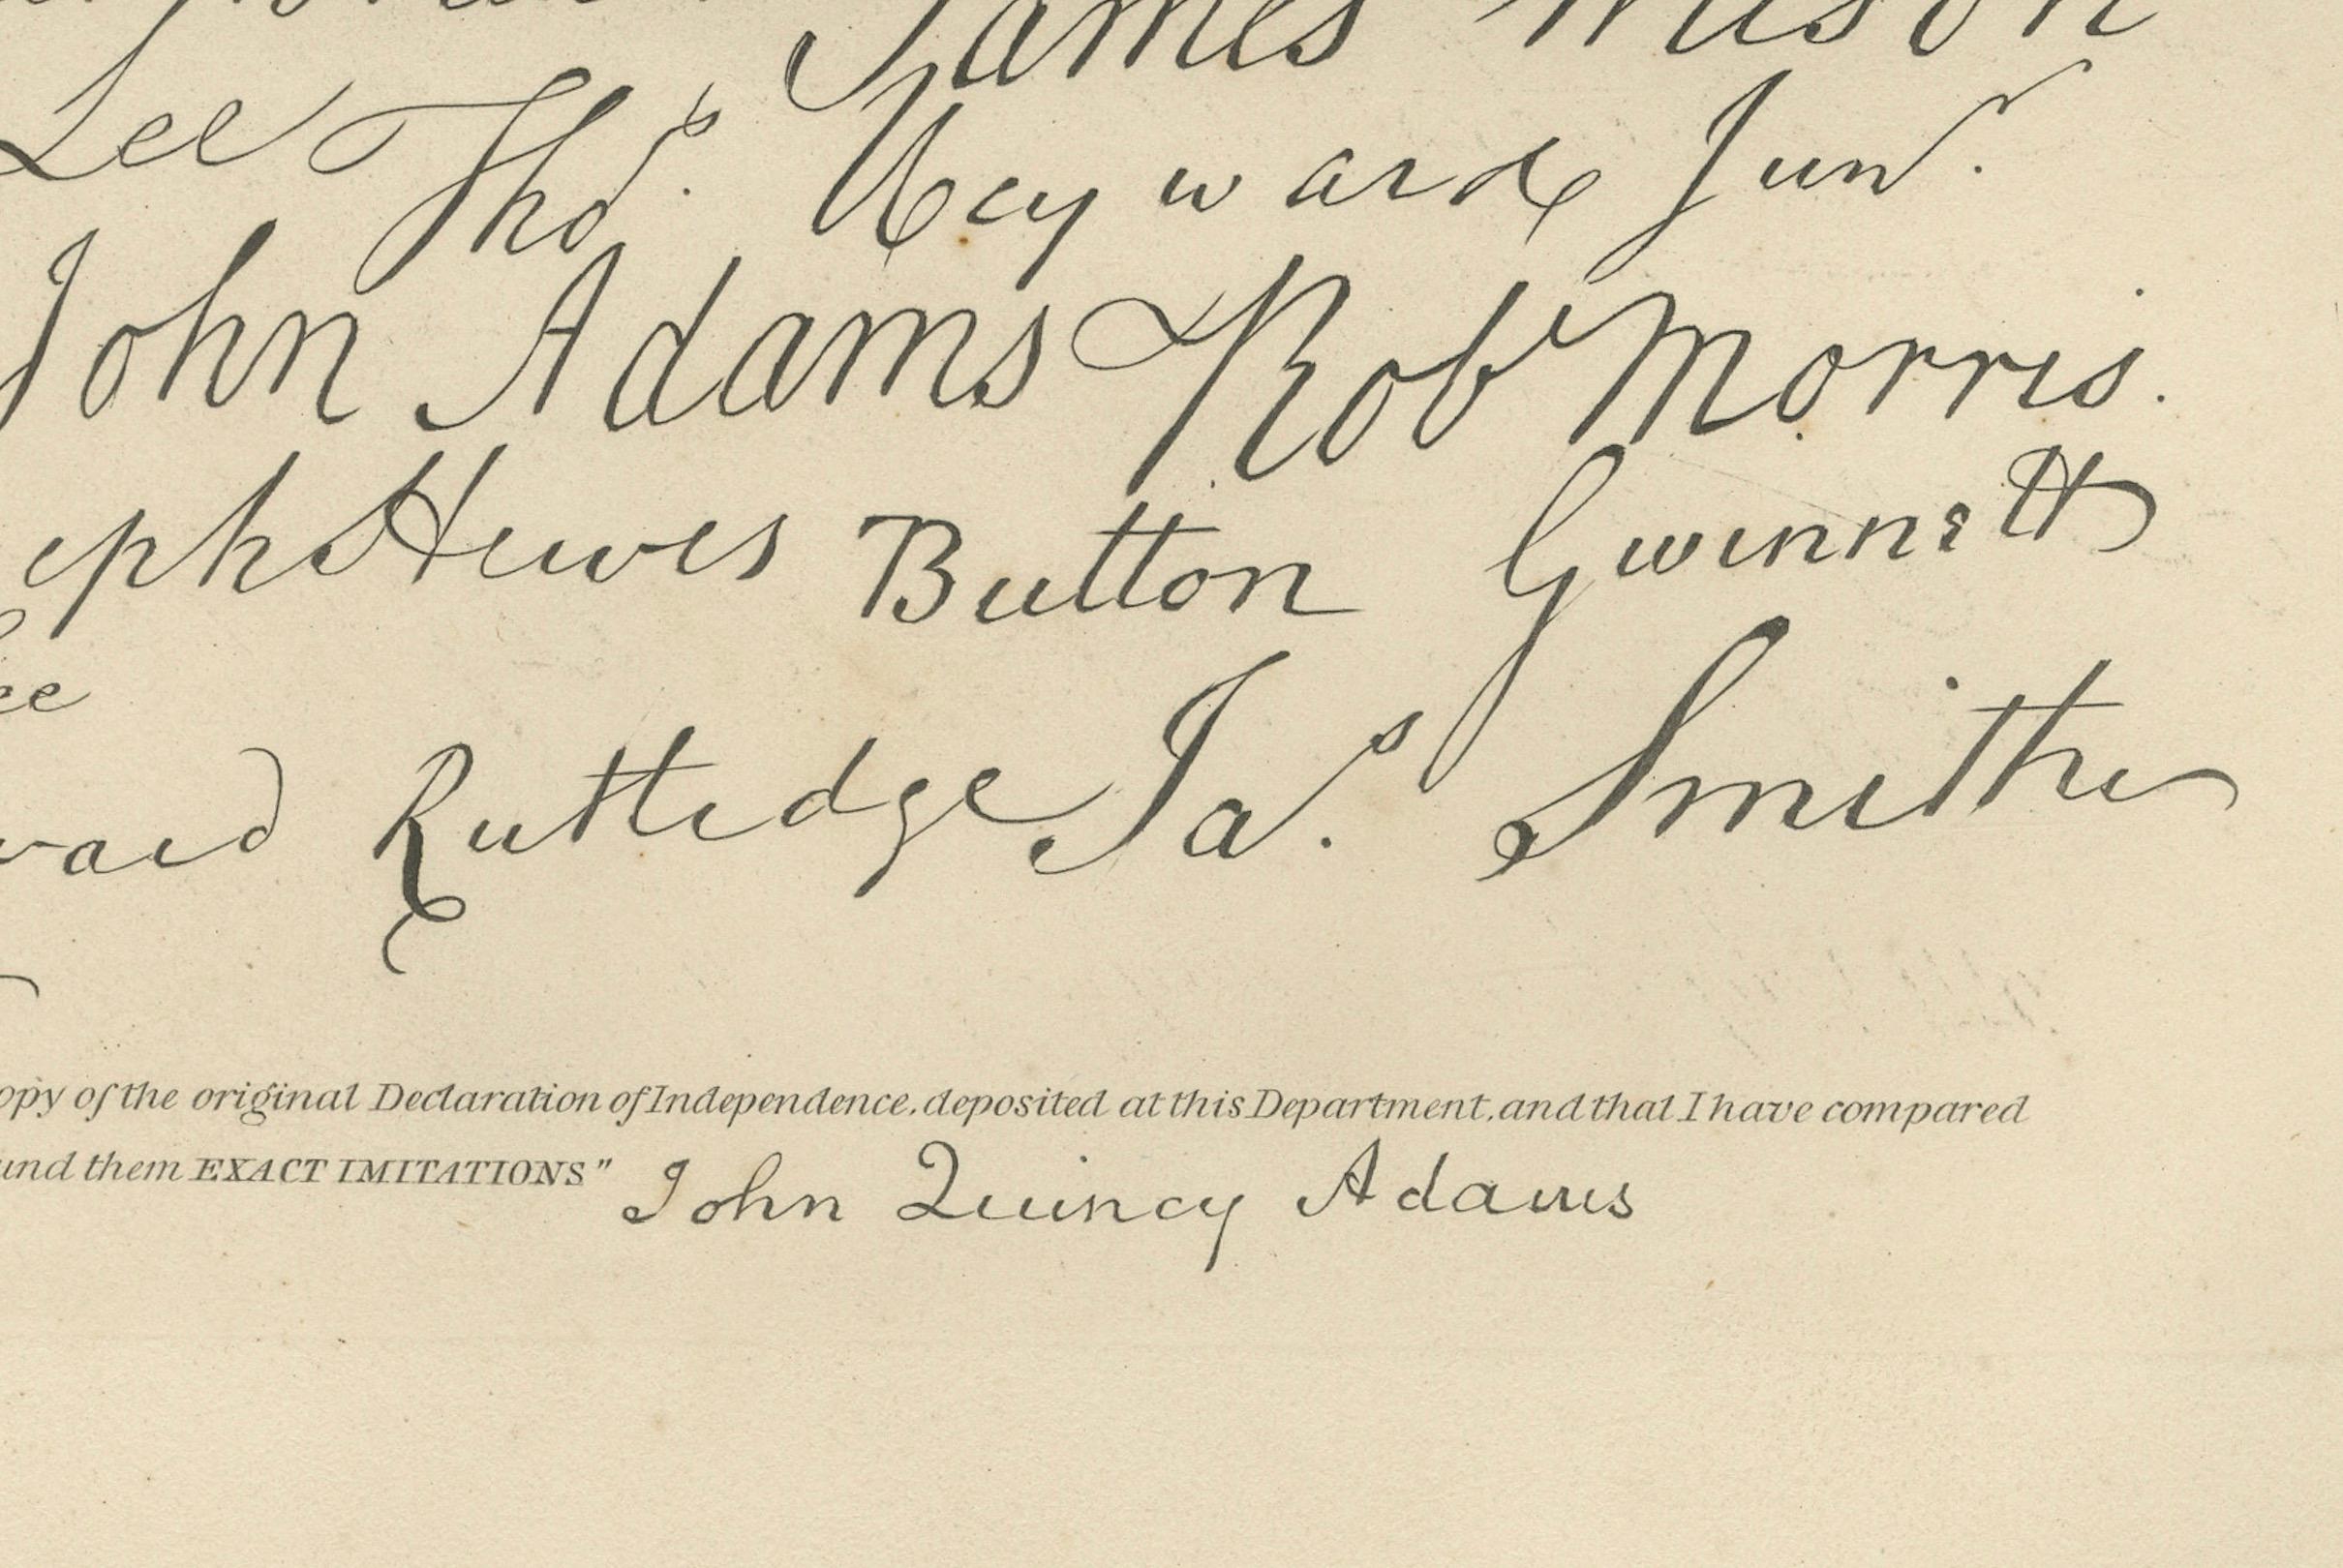 James Wilson
Lee Thos. Heyward Junr.
John Adams Robt Morris.
eph Hewes Button Gwinnett
ee
ward Rutledge Jas. Smith
opy of the original Declaration of Independence, deposited at this Department, and that I have compared
und them EXACT IMITATIONS" John Quincy Adams